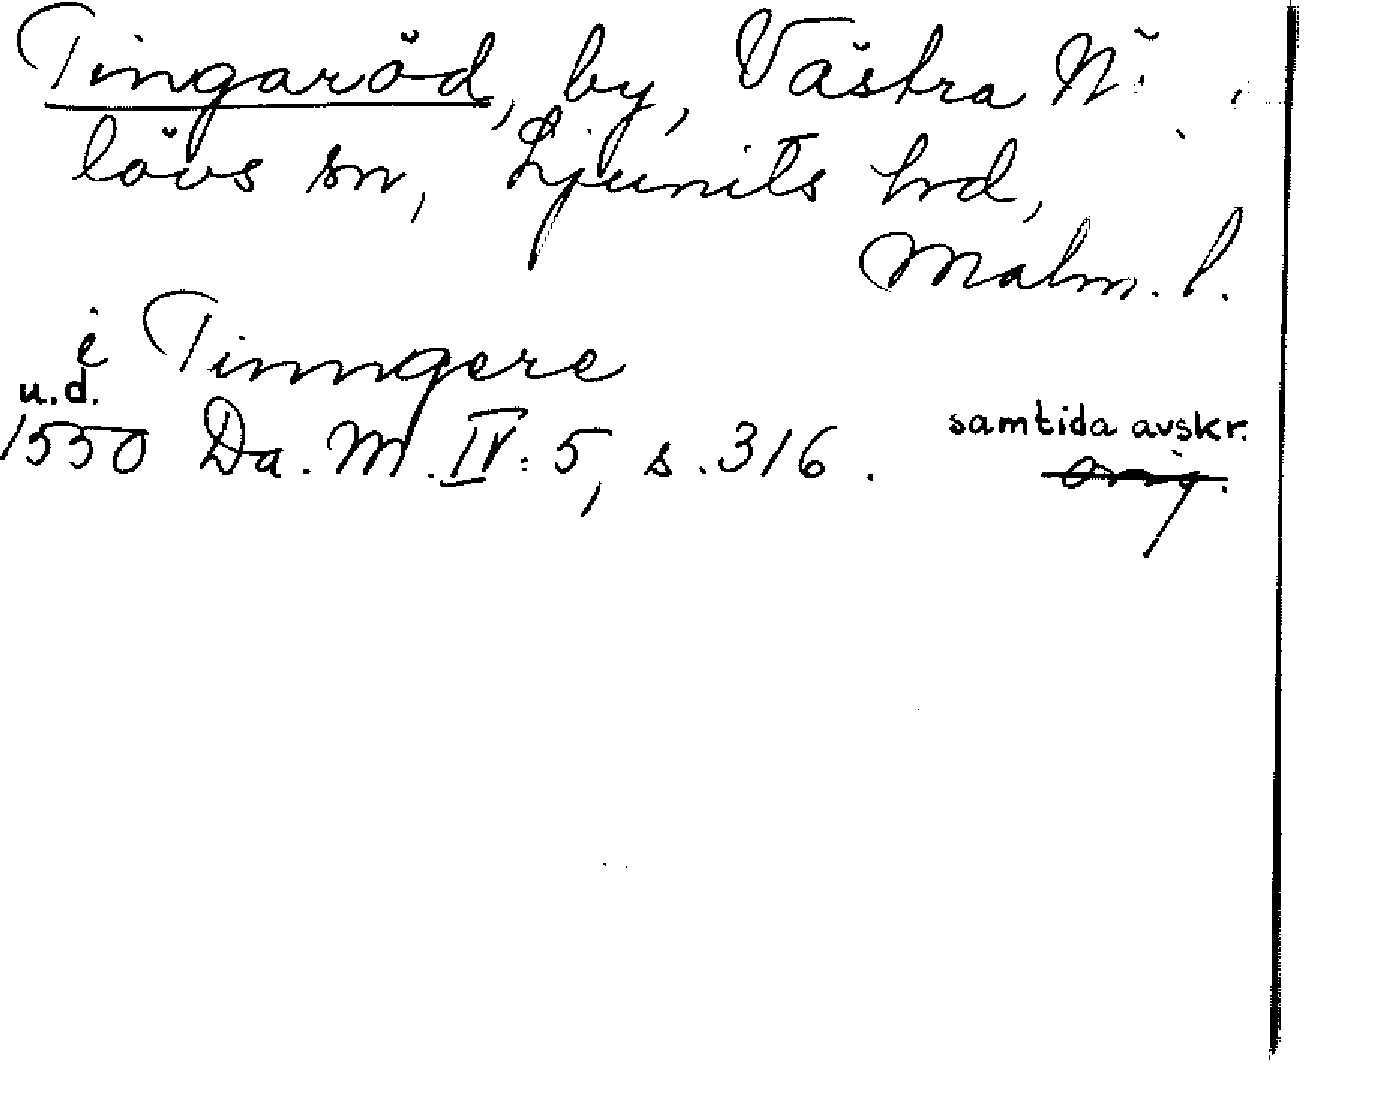 Tingaröd, by, Västra N
lövs sn, Ljunits hrd,
Malm. l.
i Tinngere
u.d.
1550 Da. M. IV: 5, s. 316.
samtida avskr.
orig.